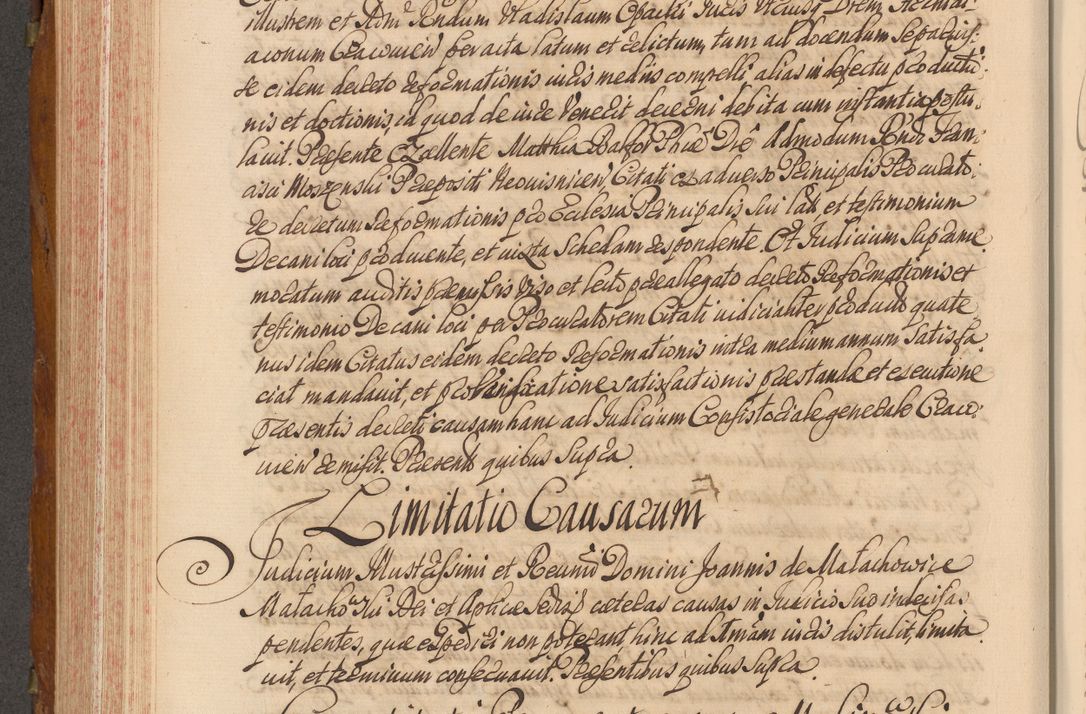 illustrem et Adm. Rendum Vladislaum Opacki Jucis Utriusq. Drem Archidi-
aconum Cracovien peracta Satum et delictum, tum ad docendum se pacuiss:
se eidem decreto reformationis iuris mediis compelli alias in defectu producti-
nis et doctionis, id quod de iure venerit decerni debita cum instantia postu-
lauit. Praesente Excellente Matthia Balfor Phiae Dre Admodum Rndo Fran-
cisci Moszenski Praepositi Neouisnicen Citati ex aduerso Principalis Procurato-
re decretum Reformationis pro Ecclesia Principalis sui lat et testimonium
Decani loci producente, et iuxta Schedam respondente. Et Judicium Supra me-
moratum auditis praemissis viso et lecto praeallegato decreto Reformationis et
testimonio Decani loci per Procuratorem Citati iudicialiter producto quate-
nus idem Citatus eidem decreto Reformationis intra medium annum satisfa-
ciat mandauit, et pro satisfactionis praestandae et executione
praesentis decreti causam hanc ad Judicium Consistoriale generale Craco-
uien remisit. Praesent quibus supra.
Limitatio Causarum
Judicium Illustrissimi et Reumi Domini Joannis de Małachowice
Małachowski Dei et Aplicae Sedis caeteras causas in Judicio suo indecisas
pendentes, quae expediri non poterant hinc ad Amam iuris distulit, limita-
uit, et terminum conseruauit. Praesentibus quibus supra.